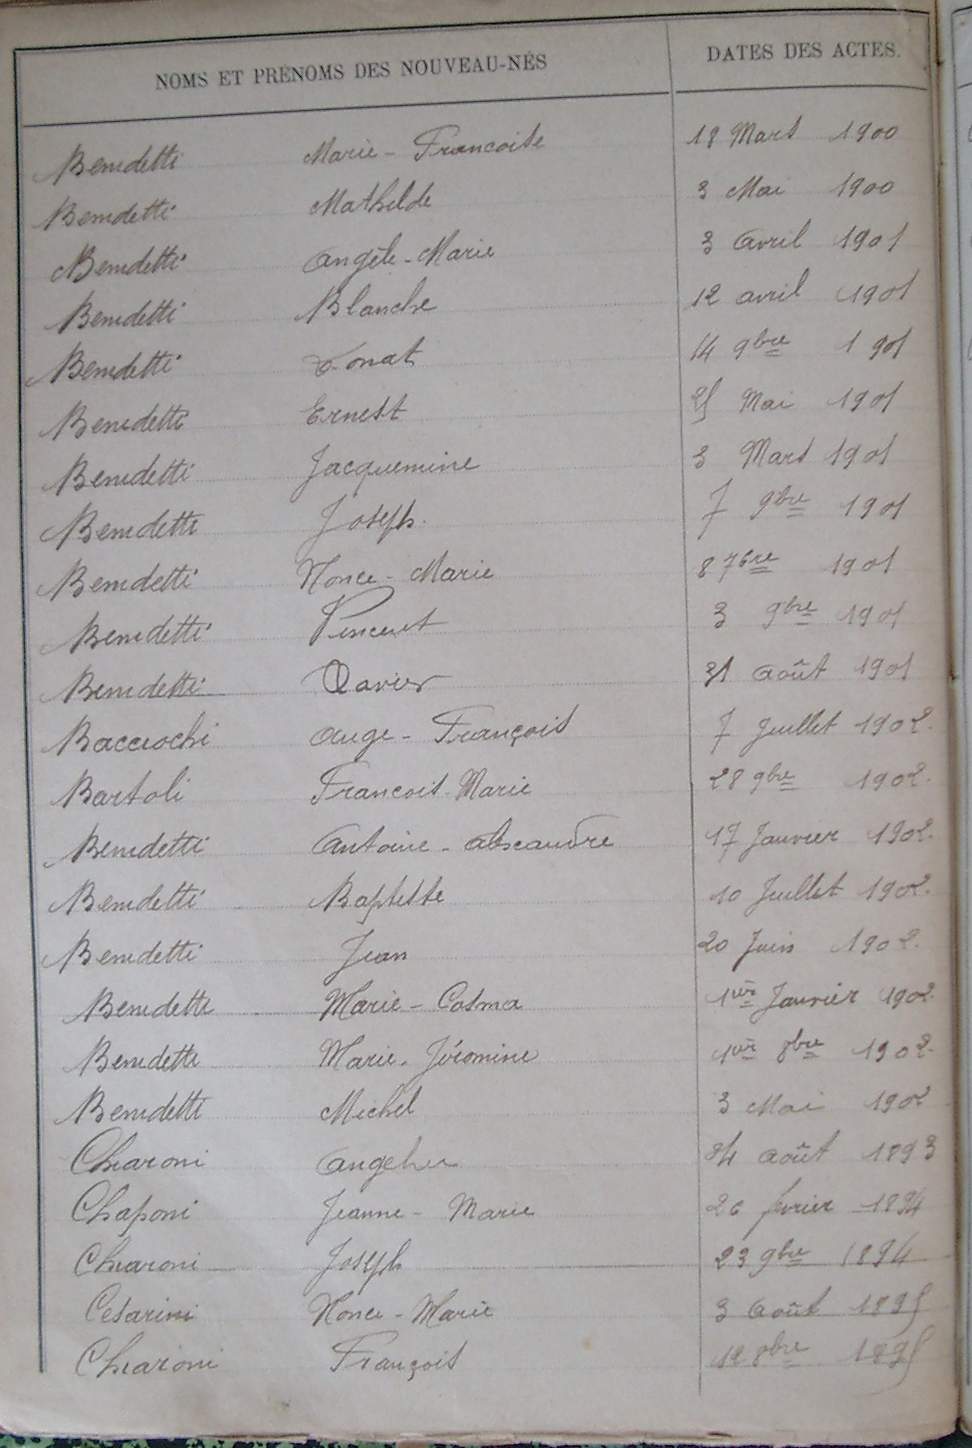 NOMS ET PRÉNOMS DES NOUVEAU-NÉS DATES DES ACTES.
Benedetti Marie - Francoise 18 Mars 1900
Benedetti Mathilde 3 Mai 1900
Benedetti Angèle - Marie 3 Avril 1901
Benedetti Blanche 12 avril 1901
Benedetti Donat 14 9bre 1901
Benedetti Ernest 25 Mai 1901
Benedetti Jacquemine 3 Mars 1901
Benedetti Joseph 7 9bre 1901
Benedetti Nonce - Marie 8 7bre 1901
Benedetti Vincent 3 9bre 1901
Benedetti Xavier 31 août 1901
Bacciochi Ange - François 7 Juillet 1902
Bartoli Francois - Marie 28 9bre 1902
Benedetti Antoine - 17 Janvier 1902
Benedetti Baptiste 10 Juillet 1902
Benedetti Jean 20 Juin 1902
Benedetti Marie - Cosma 1er Janvier 1902
Benedetti Marie - Jéromine 1er 8bre 1902
Benedetti Michel 3 Mai 1902
Chiaroni août 1893
Chaponi Jeanne - Marie février 1894
Chiaroni Joseph 23 9bre 1894
Cesarini Nonce - Marie 3 Août 1895
Chiaroni François 12 8bre 1895